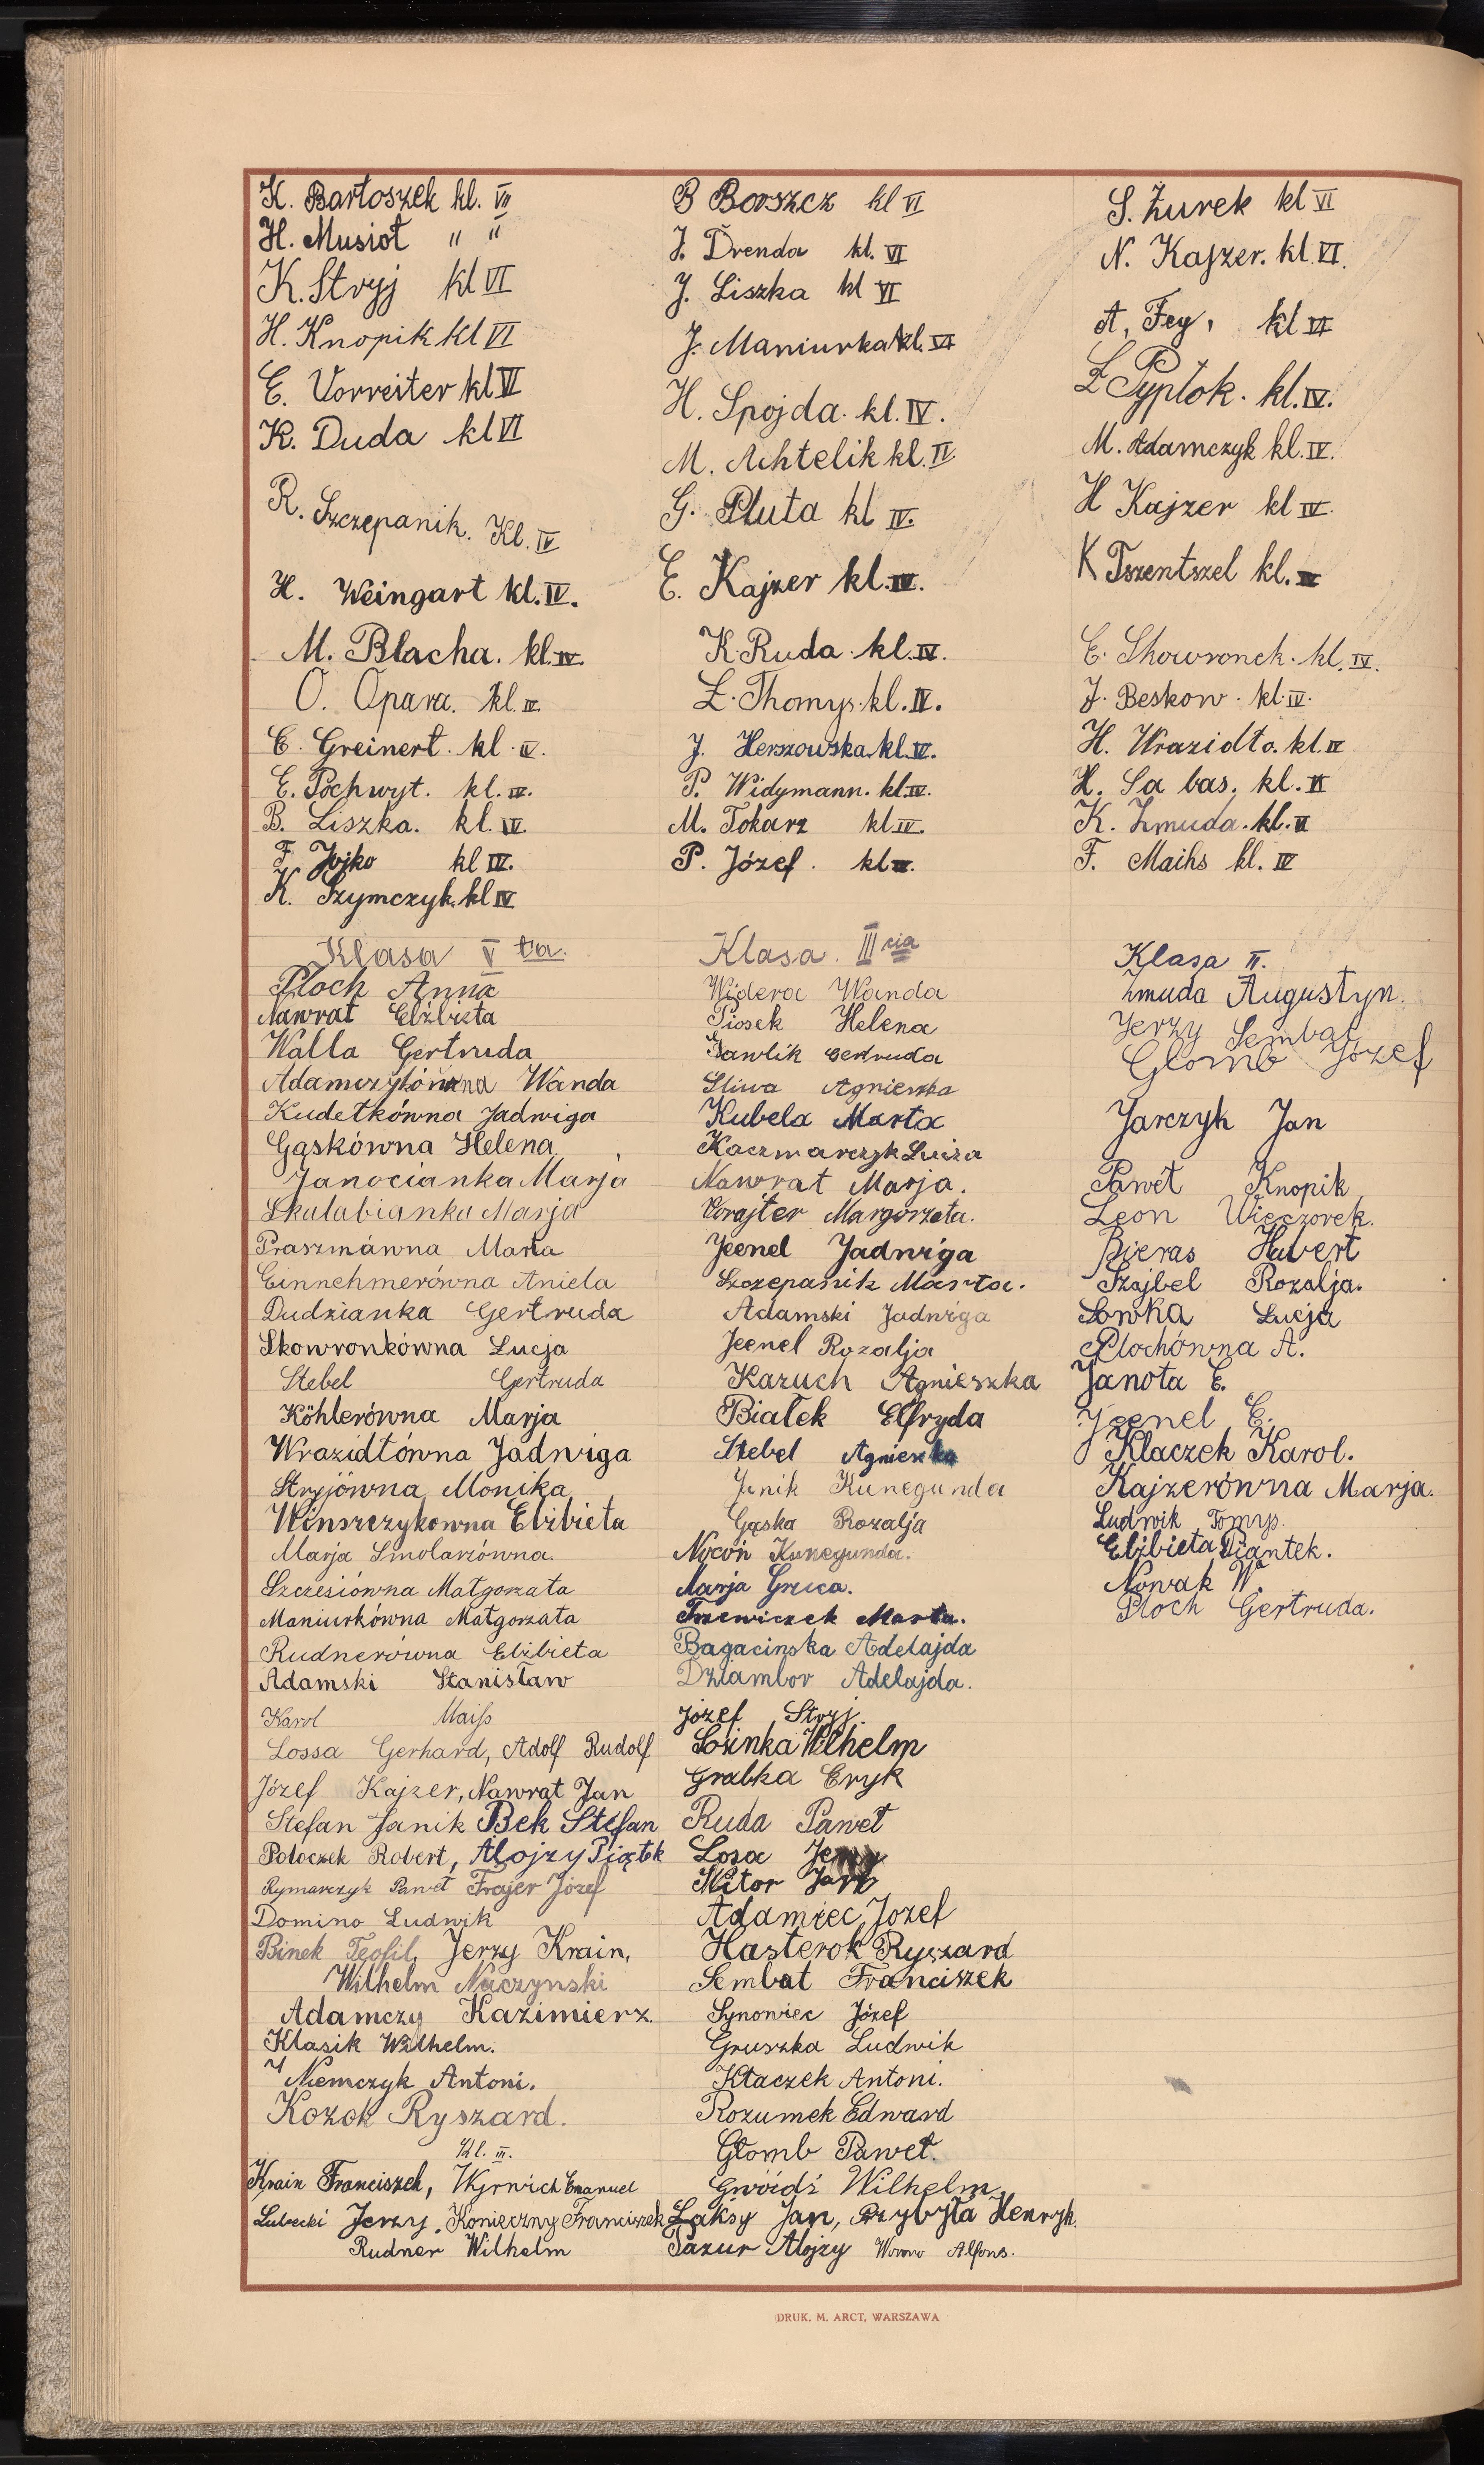 K. Bartoszek kl. VII
H. Musioł " "
K. Stryj kl VI
H. Knopik kl VI
E. Vorreiter kl VI
K. Duda kl VI
R. Szczepanik. Kl. IV
H. Weingart kl. IV.
M. Blacha. kl. IV.
O. Opara. kl. IV.
E. Greinert. kl. IV.
E. Pochwyt. kl. IV.
B. Liszka. kl. IV.
F. Jojko kl IV.
K. Szymczyk. kl IV
B Borszcz kl VI
J. Drenda kl. VI
J. Liszka kl VI
J. Maniurka kl. VI
H. Spojda. kl. IV.
M. Achtelik kl. IV.
G. Pluta kl IV.
E. Kajzer kl. IV.
K. Ruda. kl. IV.
Ł. Thomys. kl. IV.
J. Herszowska. kl. IV.
P. Widymann. kl. IV.
M. Tokarz kl IV.
P. Józef. kl IV.
S. Żurek kl VI
N. Kajzer. kl. VI.
A. Fey, kl VI
Ł Pyplok. kl. IV.
M. Adamczyk kl. IV.
H Kajzer kl IV.
K Tszentszel kl. IV
E. Skowronek. kl. IV.
J. Beskow. kl. IV.
H. Wrazidło. kl. IV
H. Sa bas. kl. IV
K. Żmuda. kl. IV
F. Maihs kl. IV
Klasa V ta.
Ploch Anna
Nawrat Elżbieta
Walla Gertruda
Adamczykówna Wanda
Kudełkówna Jadwiga
Gąskówna Helena
Janocianka Marja
Skalabianka Marja
Praszmáwna Marta
Einnehmerówna Aniela
Dudzianka Gertruda
Skowronkówna Łucja
Stebel Gertruda
Köhlerówna Marja
Wrazidłówna Jadwiga
Stryjówna Monika
Winszczykowna Elżbieta
Marja Smolarzówna.
Szczesiówna Małgorzata
Maniurkówna Małgorzata
Rudnerówna Elżbieta
Adamski Stanisław
Karol Maiss
Lossa Gerhard, Adolf Rudolf
Józef Kajzer, Nawrat Jan
Stefan Janik Bek Stefan
Poloczek Robert, Alojzy Piątek
Rymarczyk Paweł Frajer Józef
Domino Ludwik
Binek Teofil, Jerzy Krain,
Wilhelm Naczynski
Adamczy Kazimierz.
Klasik Wilhelm.
Niemczyk Antoni.
Kozok Ryszard.
Kl. III.
Krain Franciszek, Wyrwich Emanuel
Lubecki Jerzy, Konieczny Franciszek
Rudner Wilhelm
Klasa. III cia
Widera Wanda
Piosek Helena
Gawlik Gertruda
Śliwa Agnieszka
Kubela Marta
Kaczmarczyk Luiza
Nawrat Marja.
Forajter Margorzeta.
Jeenel Jadwiga
Szczepanik Marta.
Adamski Jadwiga
Jeenel Rozalja
Kazuch Agnieszka
Białek Elfryda
Stebel Agnieszka
Janik Kunegunda
Gąska Rozalja
Nocoń Kunegunda.
Marja Gruca.
Trzewiczek Marta.
Bagacinska Adelajda
Dziambor Adelajda.
Józef Stryj.
Łosinka Wilhelm
Grabka Eryk
Ruda Paweł
Losa Jerzy
Witor Jan
Adamiec, Jozef
Hasterok Ryszard
Sembat Franciszek
Synowiec Józef
Gruszka Ludwik
Kłaczek Antoni.
Rozumek Edward
Głomb Paweł.
Gwóźdź Wilhelm,
Łaksy Jan, Przybyła Henryk.
Pazur Alojzy Alfons.
Klasa II.
Żmuda Augustyn.
Jerzy Sembat
Glomb Józef
Jarczyk Jan
Paweł Knopik
Leon Wieczorek.
Bieras Hubert
Szajbel Rozalja.
Sowka Łucja
Plochówna A.
Janota E.
Jeenel E.
Klaczek Karol.
Kajzerówna Marja.
Ludwik Tomys.
Elżbieta Piantek.
Nowak W.
Ploch Gertruda.
DRUK. M. ARCT, WARSZAWA